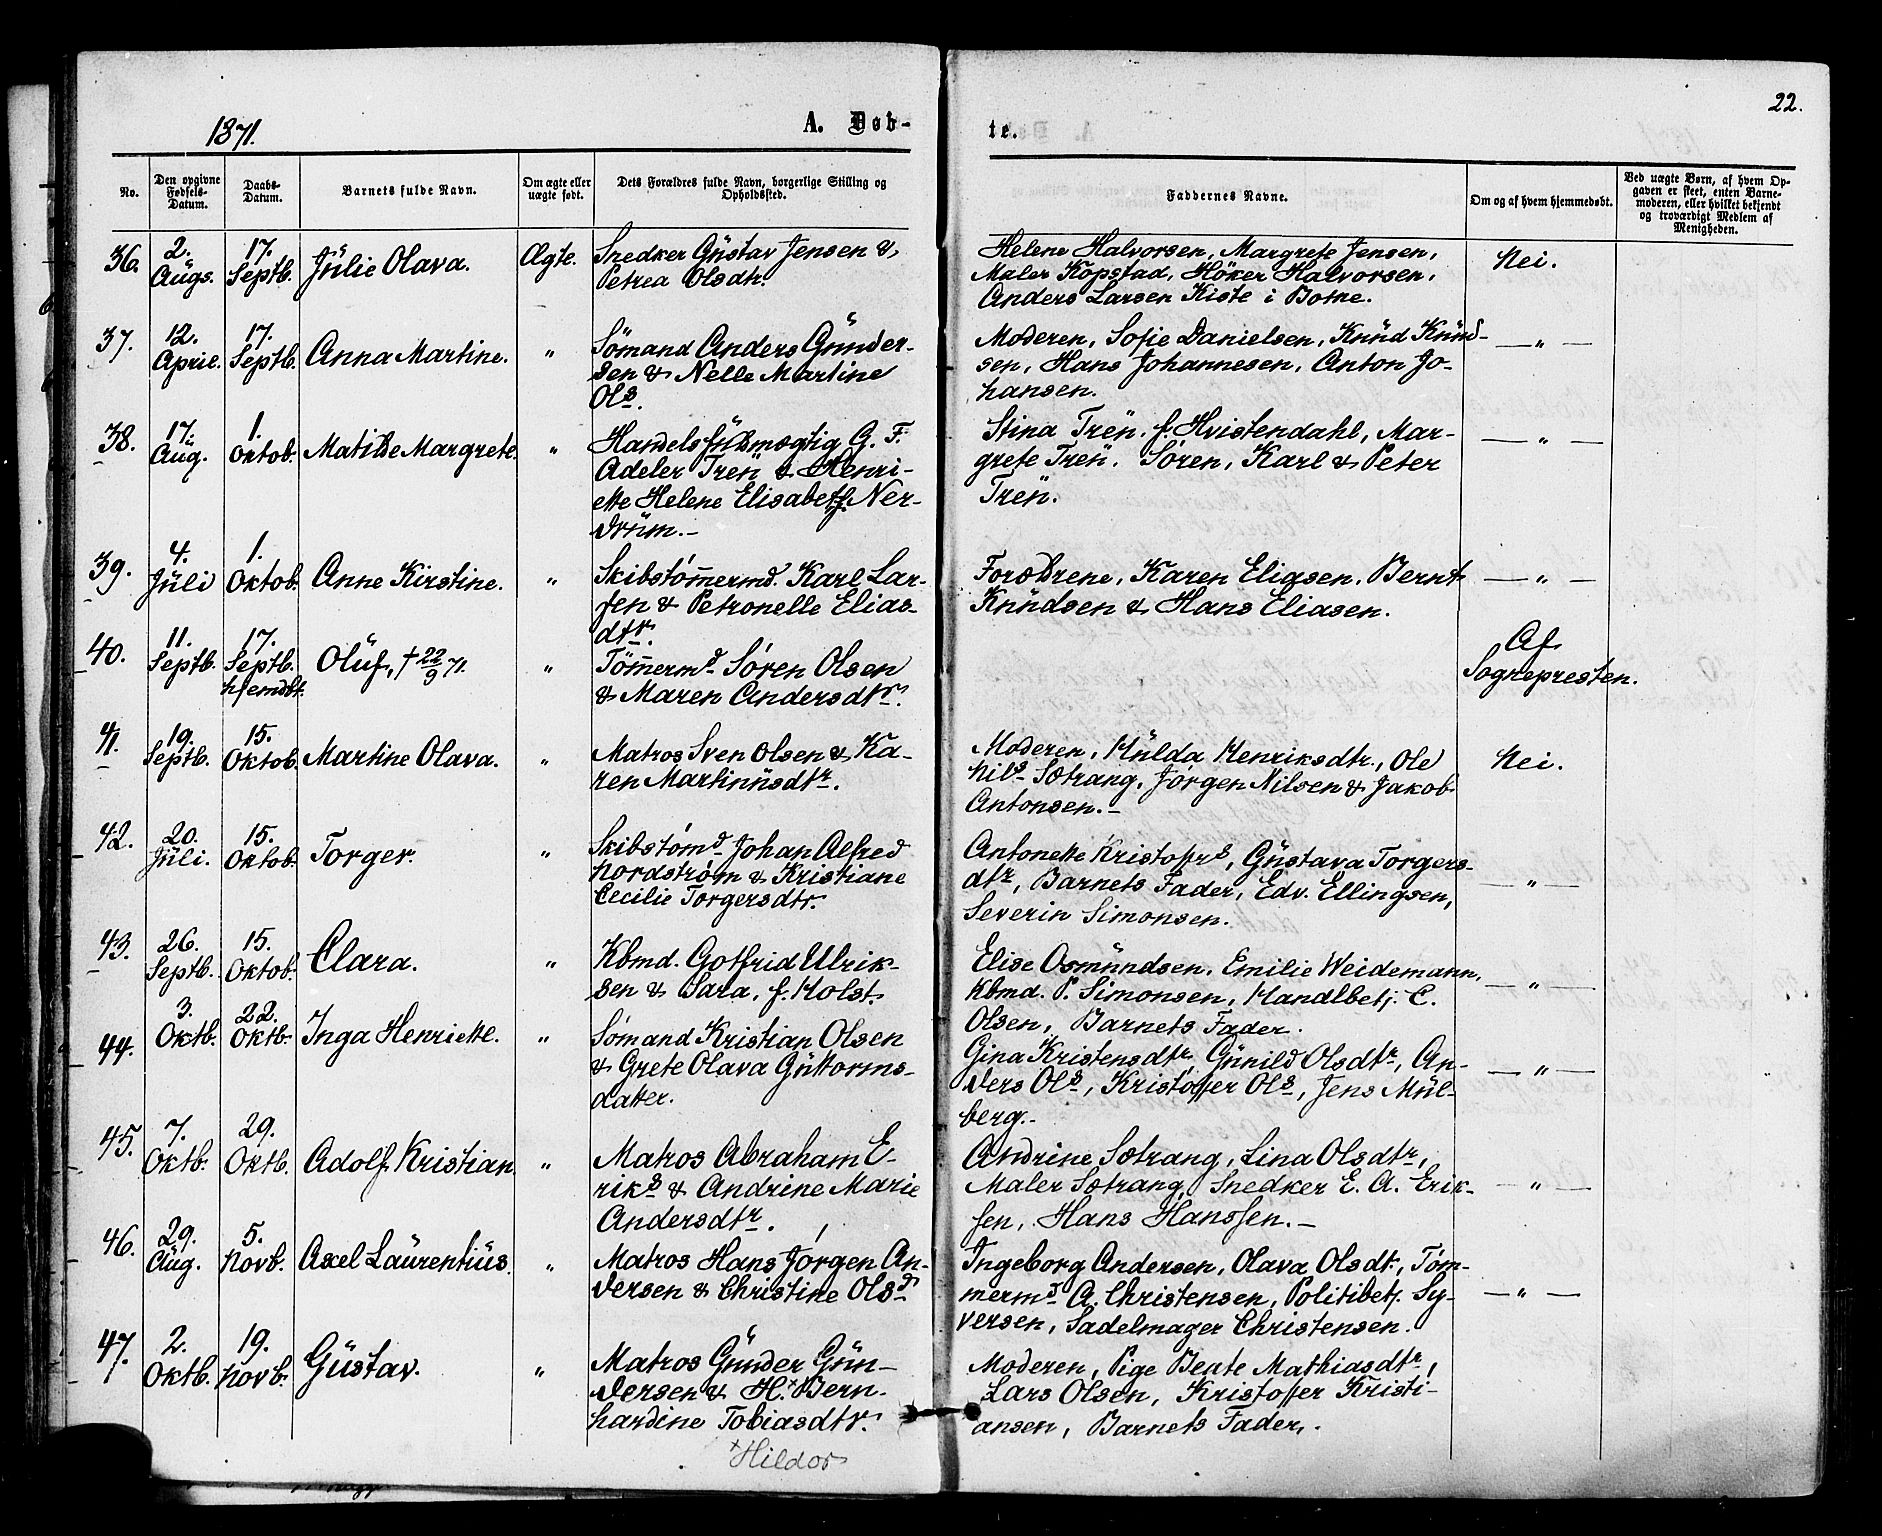 22.
1871.
A. Døb-
te.
No.
Den opgivne Fødsels-Datum.
Daabs-Datum.
Barnets fulde Navn.
Om ægte eller uægte født.
Dets Forældres fulde Navn, borgerlige Stilling og Opholdssted.
Faddernes Navne.
Om og af hvem hjemmedøbt.
Ved uægte Børn, af hvem Op-
gaven er skeet, enten Barne-
moderen, eller hvilket bekjendt
og troværdigt Medlem af
Menigheden.
36. 2. Augs. 17. Septb. Julie Olava. Ægte.
Snedker Gustav Jensen &
Petrea Olsdtr.
Helene Halvorsen, Margrete Jensen,
Maler Kopstad, Höker Halvorsen,
Anders Larsen Kiste i Botne.
Nei.
37. 12. April. 17. Septb. Anna Martine. "
Sømand Anders Gunder-
sen & Nelle Martine
Ols.
Moderen, Sofie Danielsen, Knud Knud-
sen, Hans Johannesen, Anton Jo-
hansen.
— " —
38. 17. Aug. 1. Oktob. Matilde Margrete. "
Handelsfuldmægtig G. F.
Adeler Treu & Henri-
ette Helene Elisabeth Ner-
drum. -
Stina Treu. f. Hvistendahl, Mar-
grete Treu. Søren, Karl & Peter
Treu.
— " —
39. 4. Juli 1. Oktob. Anne Kirstine. "
Skibstømmermd. Karl Lar-
sen & Petronelle Elias-
dtr.
Forældrene, Karen Eliasen, Bernt
Knudsen & Hans Eliasen.
— " —
40. 11. Septb. 17. Septb. hjemdbt. Oluf, † 22/9 71. "
Tømmermd Søren Olsen
& Maren Andersdtr.
Af
Sognepresten.
41. 19. Septb. 15. Oktob. Martine Olava. "
Matros Sven Olsen & Ka-
ren Martinusdtr.
Moderen, Hulda Henriksdtr., Ole
Nils Sætrang, Jørgen Nilsen & Jakob
Antonsen. -
Nei.
42. 20. Juli. 15. Oktob. Torger. "
Skibstømd Johan Alfred
Nordstrøm & Kristiane
Cecilie Torgersdtr.
Antonette Kristoffrs, Gustava Torgers-
dtr, Barnets Fader, Edv. Ellingsen,
Severin Simonsen.
— " —
43. 26. Septb. 15. Oktob. Clara. "
Kbmd. Gotfrid Ulrik-
sen & Sara, f. Holst.
Elise Osmundsen, Emilie Weidemann,
Kbmd. P. Simonsen, Handlbetj. C.
Olsen, Barnets Fader.
— " —
44. 3. Oktb. 22. Oktb. Inga Henriette. "
Sømand Kristian Olsen
& Grete Olava Guttorms-
datter.
Gina Kristensdtr, Gunild Olsdtr, An-
ders Ols, Kristoffer Ols, Jens Mül-
berg. -
— " —
45. 7. Oktb. 29. Oktb. Adolf Kristian. "
Matros Abraham E-
riks & Andrine Marie
Andersdtr.
Andrine Sætrang, Lina Olsdtr,
Maler Sætrang, Snedker E. A. Erik-
sen, Hans Hanssen. -
— " —
46. 29. Aug. 5. Novb. Axel Laurentius. "
Matros Hans Jørgen An-
dersen & Christine Olsd
Ingeborg Andersen, Olava Olsdt., Tøm-
mermd A. Christensen, Politibetj. Sy-
versen, Sadelmager Christensen.
— " —
47. 2. Oktb. 19. Novb. Gustav. "
Matros Gunder Gun-
dersen & H.× Bern-
hardine Tobiasdtr.
× Hildor
Moderen, Pige Beate Mathiasdtr,
Lars Olsen, Kristoffer Kristi-
ansen, Barnets Fader.